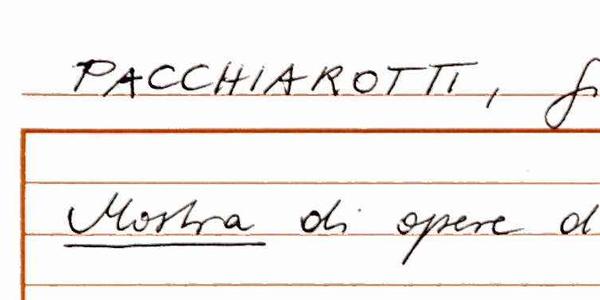 PACCHIAROTTI,
Mostra di opere d